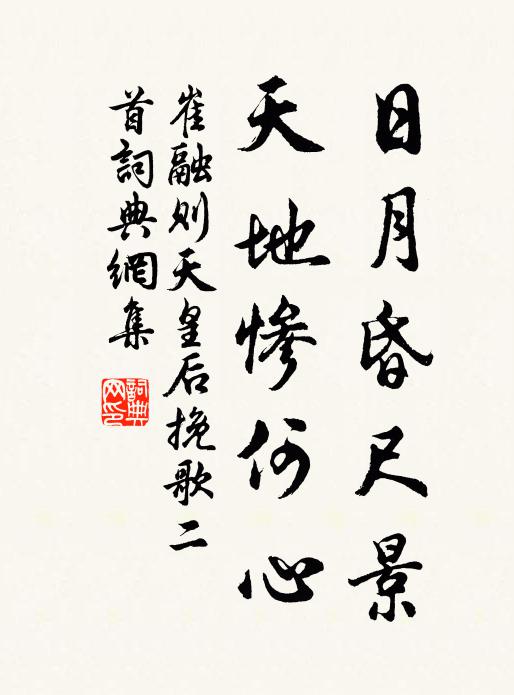 日月昏尺景
天地慘何心
崔融则天皇后挽歌二
首詞典網集
詞典网印